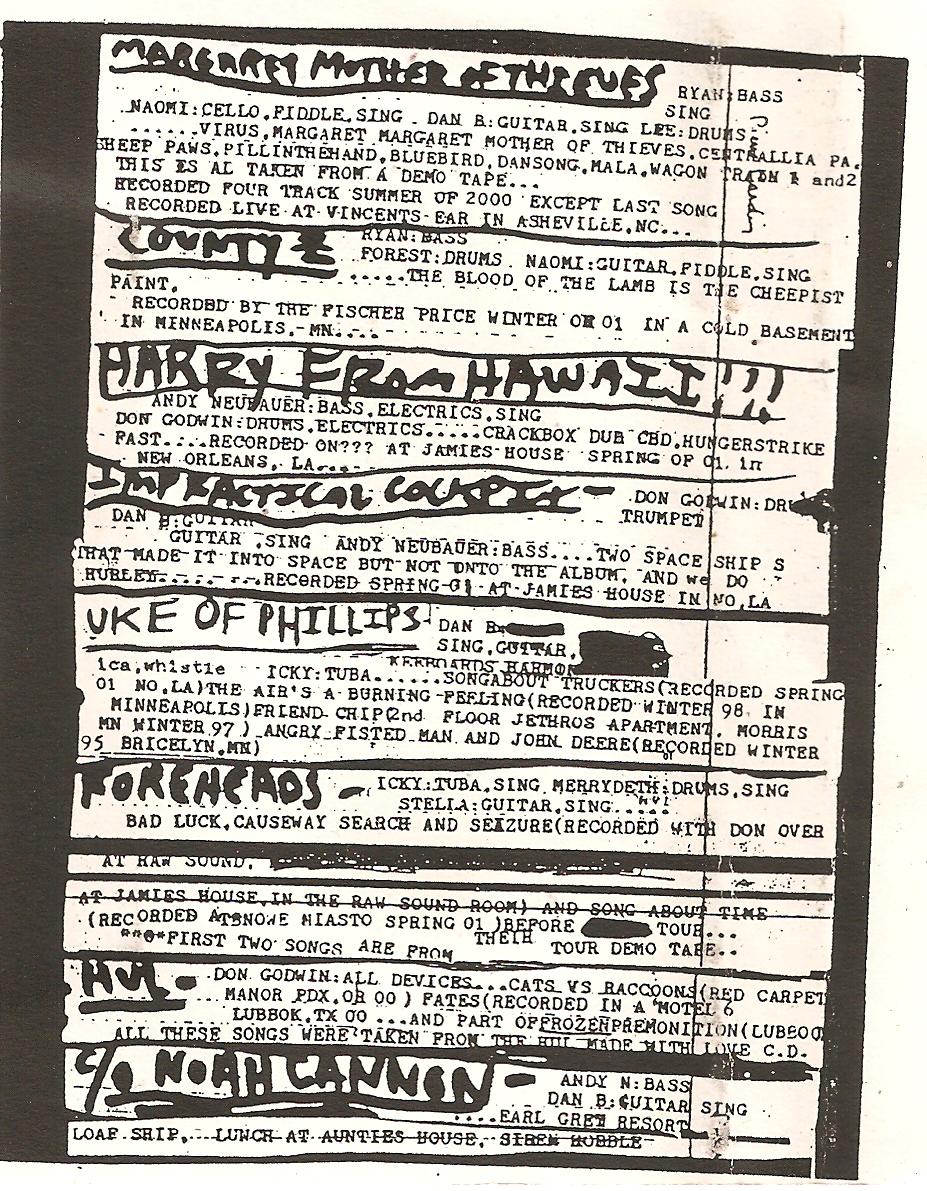 MARGARET MOTHER OF THIEVES
RYAN:BASS
SING
NAOMI:CELLO,FIDDLE,SING DAN B:GUITAR,SING LEE:DRUMS
......VIRUS,MARGARET MARGARET MOTHER OF THIEVES,CENTRALLIA PA.
SHEEP PAWS,PILLINTHEHAND,BLUEBIRD,DANSONG,MALA,WAGON TRAIN 1 and2
THIS IS AL TAKEN FROM A DEMO TAPE...
RECORDED FOUR TRACK SUMMER OF 2000 EXCEPT LAST SONG
RECORDED LIVE AT VINCENTS EAR IN ASHEVILLE,NC...
COUNTY Z
RYAN:BASS
FOREST:DRUMS NAOMI:GUITAR,FIDDLE,SING
.....THE BLOOD OF THE LAMB IS THE CHEEPIST
PAINT.
RECORDED BY THE FISCHER PRICE WINTER OR 01 IN A COLD BASEMENT
IN MINNEAPOLIS, MN....
HARRY FROM HAWAII!!!
ANDY NEUBAUER:BASS,ELECTRICS,SING
DON GODWIN:DRUMS,ELECTRICS.....CRACKBOX DUB CBD,HUNGERSTRIKE
FAST....RECORDED ON??? AT JAMIES HOUSE SPRING OF 01. in
NEW ORLEANS, LA....
IMPRACTICAL COCKPIT -
DON GODWIN:DRU
TRUMPET
DAN B:GUITAR
GUITAR ,SING ANDY NEUBAUER:BASS....TWO SPACE SHIP S
THAT MADE IT INTO SPACE BUT NOT ONTO THE ALBUM, AND we DO
HURLEY....RECORDED SPRING 01 AT JAMIES HOUSE IN NO,LA
UKE OF PHILLIPS
DAN B:
SING,GUITAR,
KEEBOARDS HARMON
ica,whistle ICKY:TUBA......SONGABOUT TRUCKERS(RECORDED SPRING
01 NO,LA)THE AIR'S A BURNING FEELING(RECORDED WINTER 98 IN
MINNEAPOLIS)FRIEND CHIP(2nd FLOOR JETHROS APARTMENT, MORRIS
MN WINTER 97) ANGRY FISTED MAN AND JOHN DEERE(RECORDED WINTER
95 BRICELYN,MN) or
FOREHEADS -
ICKY:TUBA,SING MERRYDETH:DRUMS,SING
STELLA:GUITAR,SING.....
BAD LUCK,CAUSEWAY SEARCH AND SEIZURE(RECORDED WITH DON OVER
AT RAW SOUND.
AT JAMIES HOUSE,IN THE RAW SOUND ROOM) AND SONG ABOUT TIME
(RECORDED AT NOWE MIASTO SPRING 01 )BEFORE TOUR...
THEIR
***FIRST TWO SONGS ARE FROM TOUR DEMO TAPE..
HUL -
DON GODWIN:ALL DEVICES...CATS VS RACCOONS(RED CARPET
MANOR PDX,OR 00 ) FATES(RECORDED IN A MOTEL 6
LUBBOK,TX 00 ...AND PART OF FROZEN PREMONITION(LUBBOO
ALL THESE SONGS WERE TAKEN FROM THE HUL MADE WITH LOVE C.D.
C/O NOAH CANNON -
ANDY N:BASS
DAN B:GUITAR SING
....EARL GREY RESORT
LOAF SHIP, LUNCH AT AUNTIES HOUSE, SIREN HOBBLE